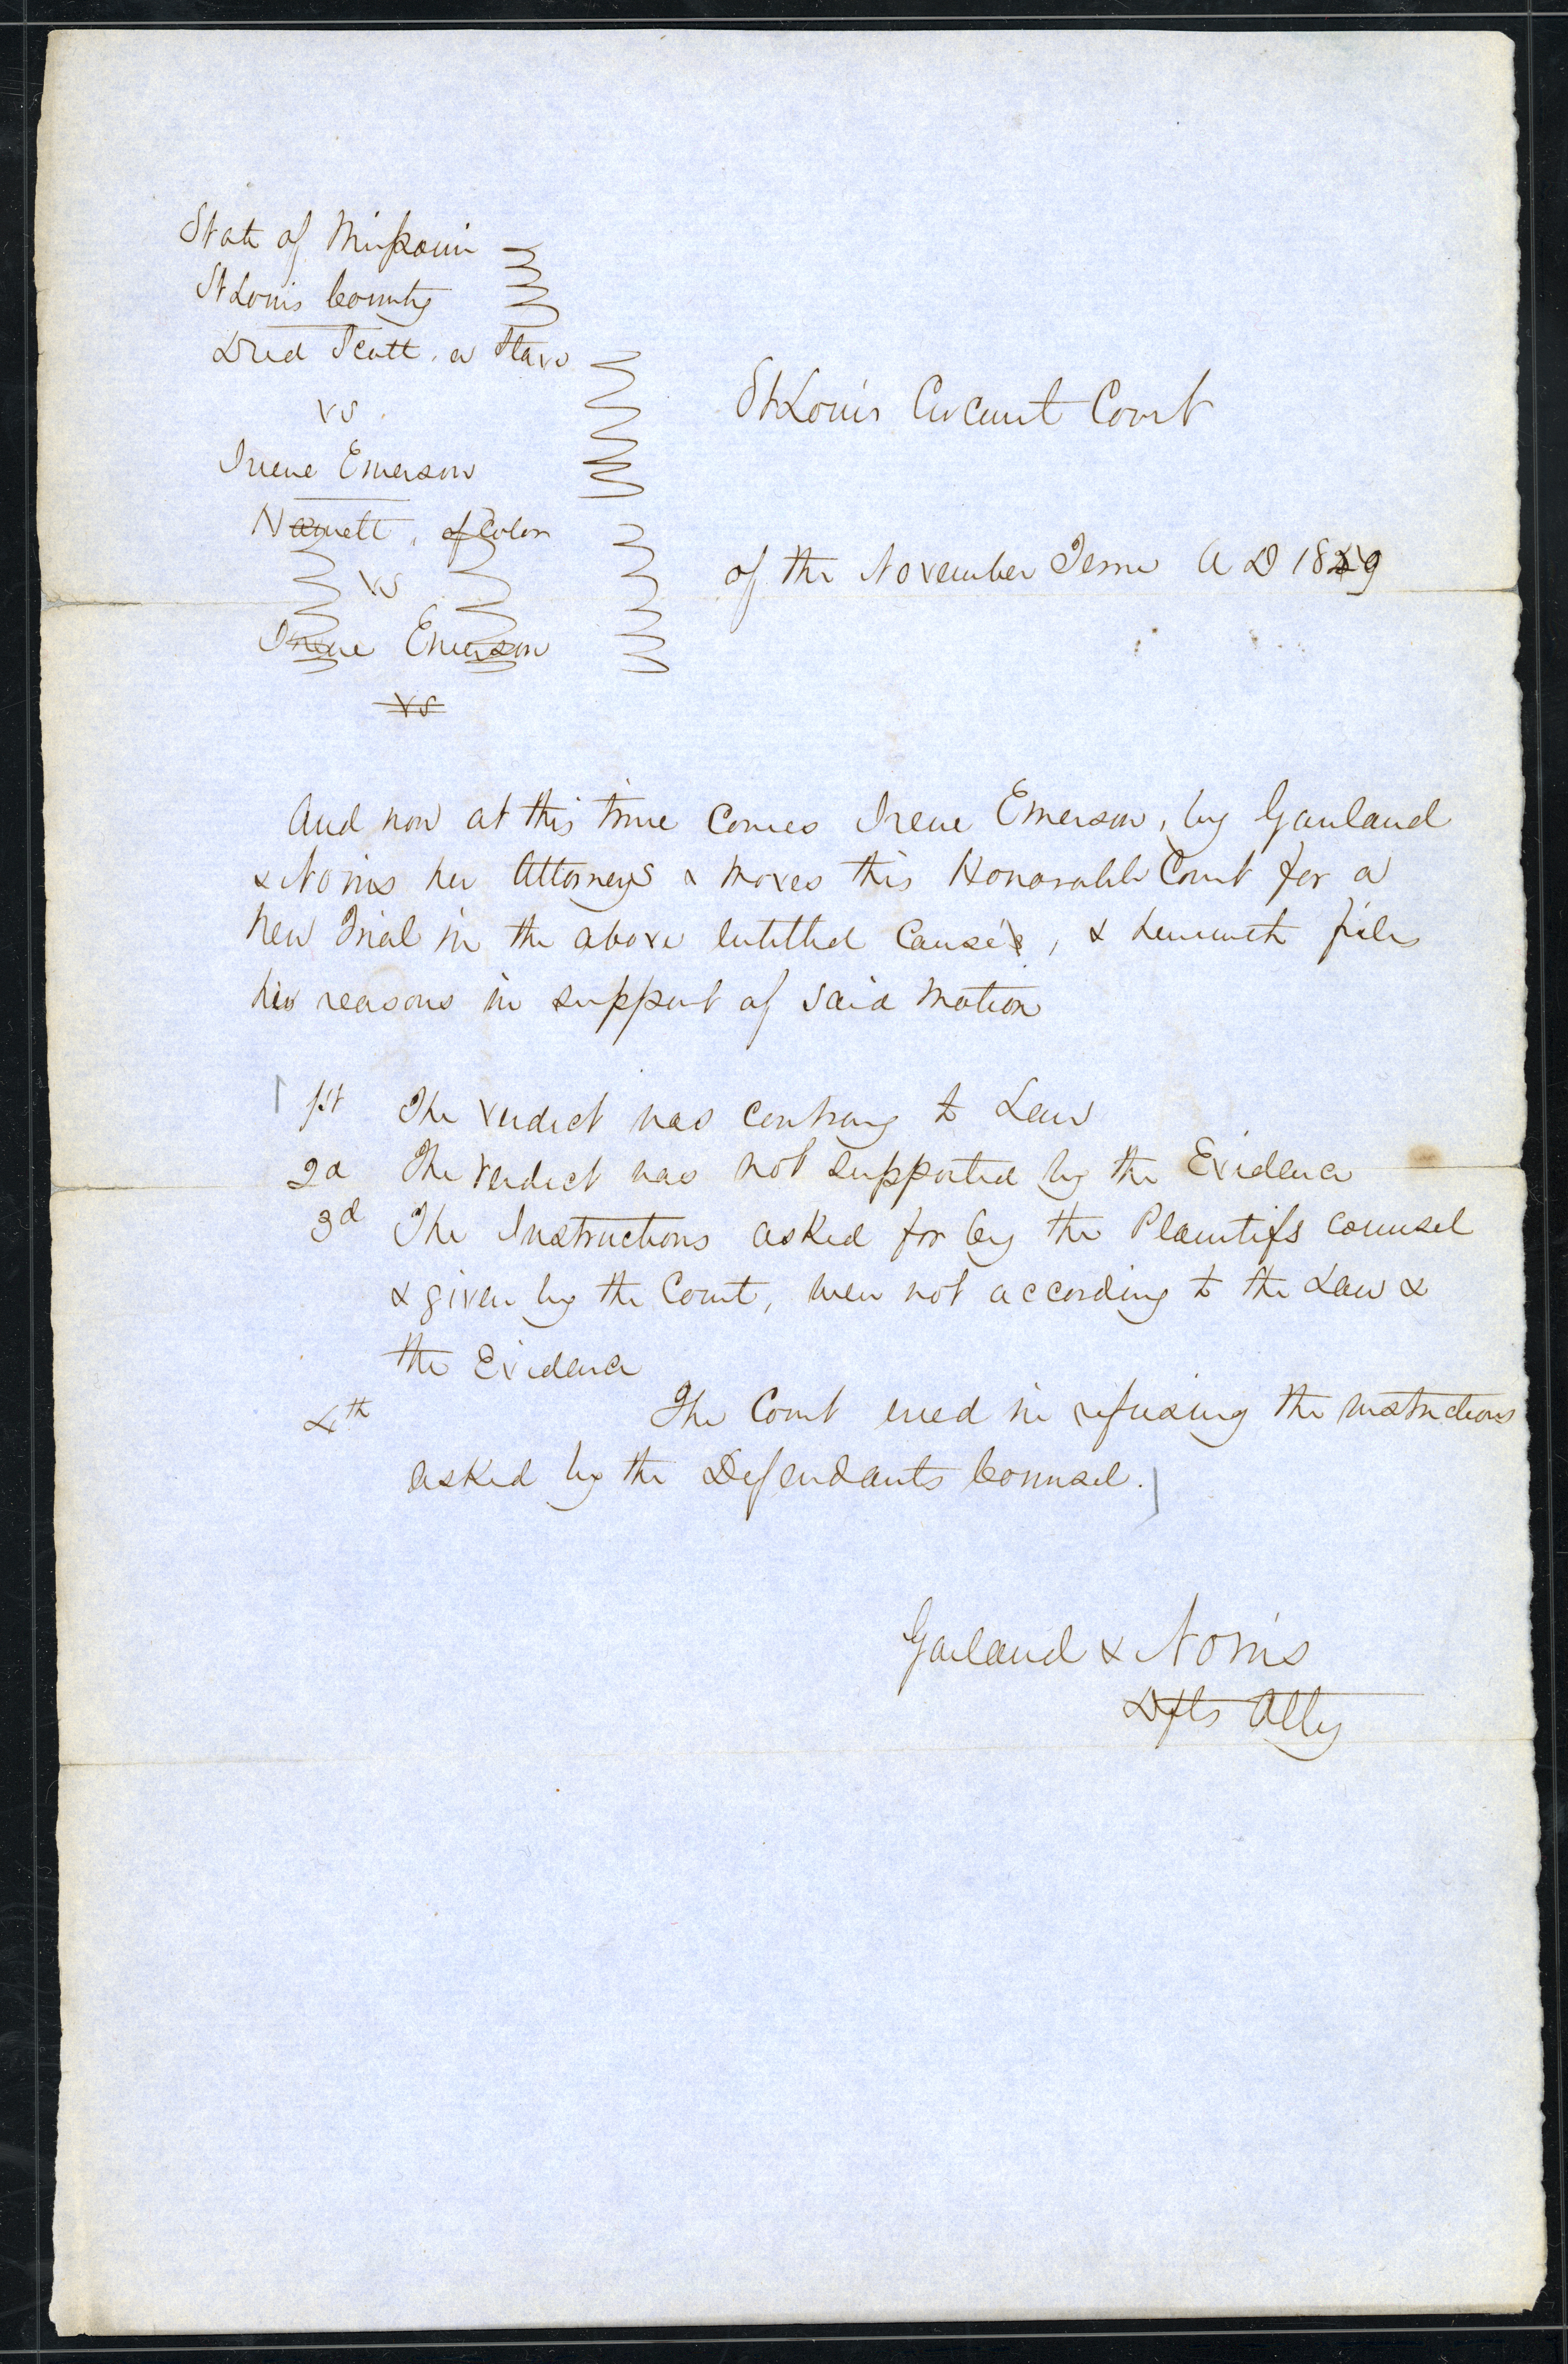 State of Missouri
St Louis County
Dred Scott, a Slave
vs
Irene Emerson
St Louis Circuit Court
Harriett, of Color
vs
Irene Emerson
vs
of the November Term A D 1849
And now at this time Comes Irene Emerson, by Garland
& Norris her Attorneys & moves this Honorable Court for a
New Trial in the above entitled Cause, & herewith files
her reasons in support of said Motion
1st The verdict was contrary to Law
2d The verdict was not supported by the Evidence
3d The Instructions asked for by the Plaintifs counsel
& given by the Court, were not according to the Law &
the Evidence
4th The Court erred in refusing the instructions
asked by the Defendants Counsel.
Garland & Norris
Dfts Atty